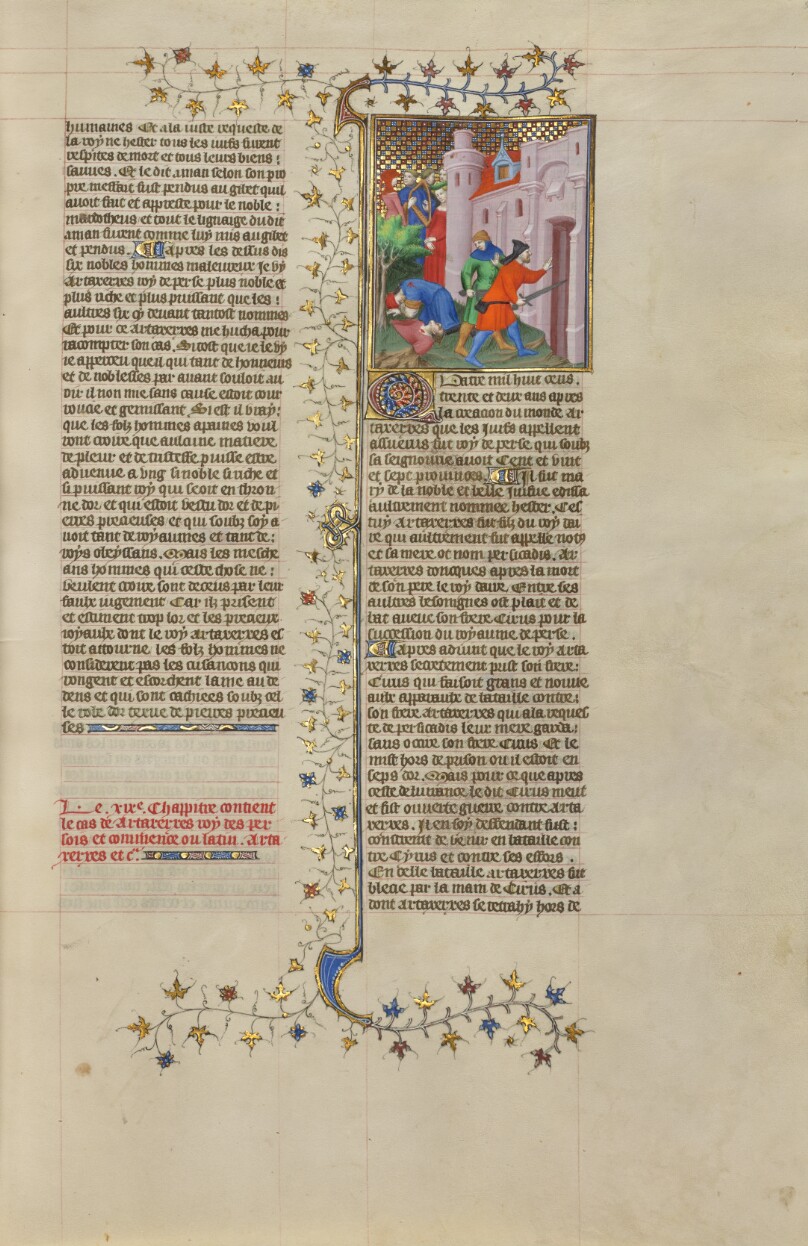 humaines Et a la iuste requeste de
la royne hester tous les iuifs furent
respites de mort et tous leurs biens
sauues. Et le dit aman selon son pro
pre meffait fust pendus au gibet quil
auoit fait et appreste pour le noble
mardocheus et tout le lignaige dudit
aman furent comme luy mis au gibet
et pendus. Apres les dessus dis
six nobles hommes maleureux Je vy
Artaxerxes roy de perse plus noble et
plus riche et plus puissant que les
aultres six cy deuant tantost nommes
Et pour ce Artaxerxes me hucha pour
racompter son cas. Si tost que ie le vy
ie apperceu que il qui tant de honneurs
et de noblesses par auant souloit au
oir il non mie sans cause estoit cour
rouce et gemissant. Si est il vray
que les folz hommes apaines voul
dront croire que aulcune matiere
de pleur et de tristesse puisse estre
aduenue a vng si noble si riche et
si puissant roy qui seoit en thron
ne dor et qui estoit vestu dor et de pi
erres precieuses et qui soubz soy a
uoit tant de royaumes et tant de
roys obeyssans. Mais les mesche
ans hommes qui ceste chose ne
veulent croire sont deceus par leur
faulx iugement Car ilz prisent
et estiment trop lor et les precieux
royaulx dont le roy artaxerxes es
toit attourne. les folz hommes ne
considerent pas les cusancons qui
rongent et escorchent lame au de
dens et qui sont cachiees soubz cel
le robe dor texue de pierres precieu
ses
Le. xixe. Chappitre contient
le cas de Artaxerxes roy des per
sois et commence ou latin. Arta
xerxes et c.
Quatre mil huit cens.
trente et deux ans apres
la creacion du monde Ar
taxerxes que les iuifs appellent
assuerus fut roy de perse qui soubz
sa seignourie auoit Cent et vint
et sept prouinces. Il fut ma
ry de la noble et belle Juifue edissa
aultrement nommee hester. Ces
tuy Artaxerxes fut filz du roy dai
re qui aultrement fut appelle notus
et sa mere ot nom persicadis. Ar
taxerxes doncques apres la mort
de son pere le roy daire. Entre ses
aultres besoingnes ost plait et de
bat auecue son frere Cirus pour la
succession du royaume de perse.
Apres aduint que le roy arta
xerxes secretement prist son frere
Cirus qui faisoit grans et nouue
aulx appareulx de bataille contre
son frere Artaxerxes qui a la reques
te de persicadis leur mere garda
sans occire son frere Cirus Et le
mist hors de prison ou il estoit en
seps dor. Mais pour ce que apres
ceste deliurance le dit Cirus meut
et fist ouuerte guerre contre Arta
xerxes. Il en soy deffendant fust
constraint de venir en bataille con
tre Cyrus et contre ses effors.
En celle bataille artaxerxes fut
blecie par la main de Cirus. Et a
dont Artaxerxes se retrahy hors de